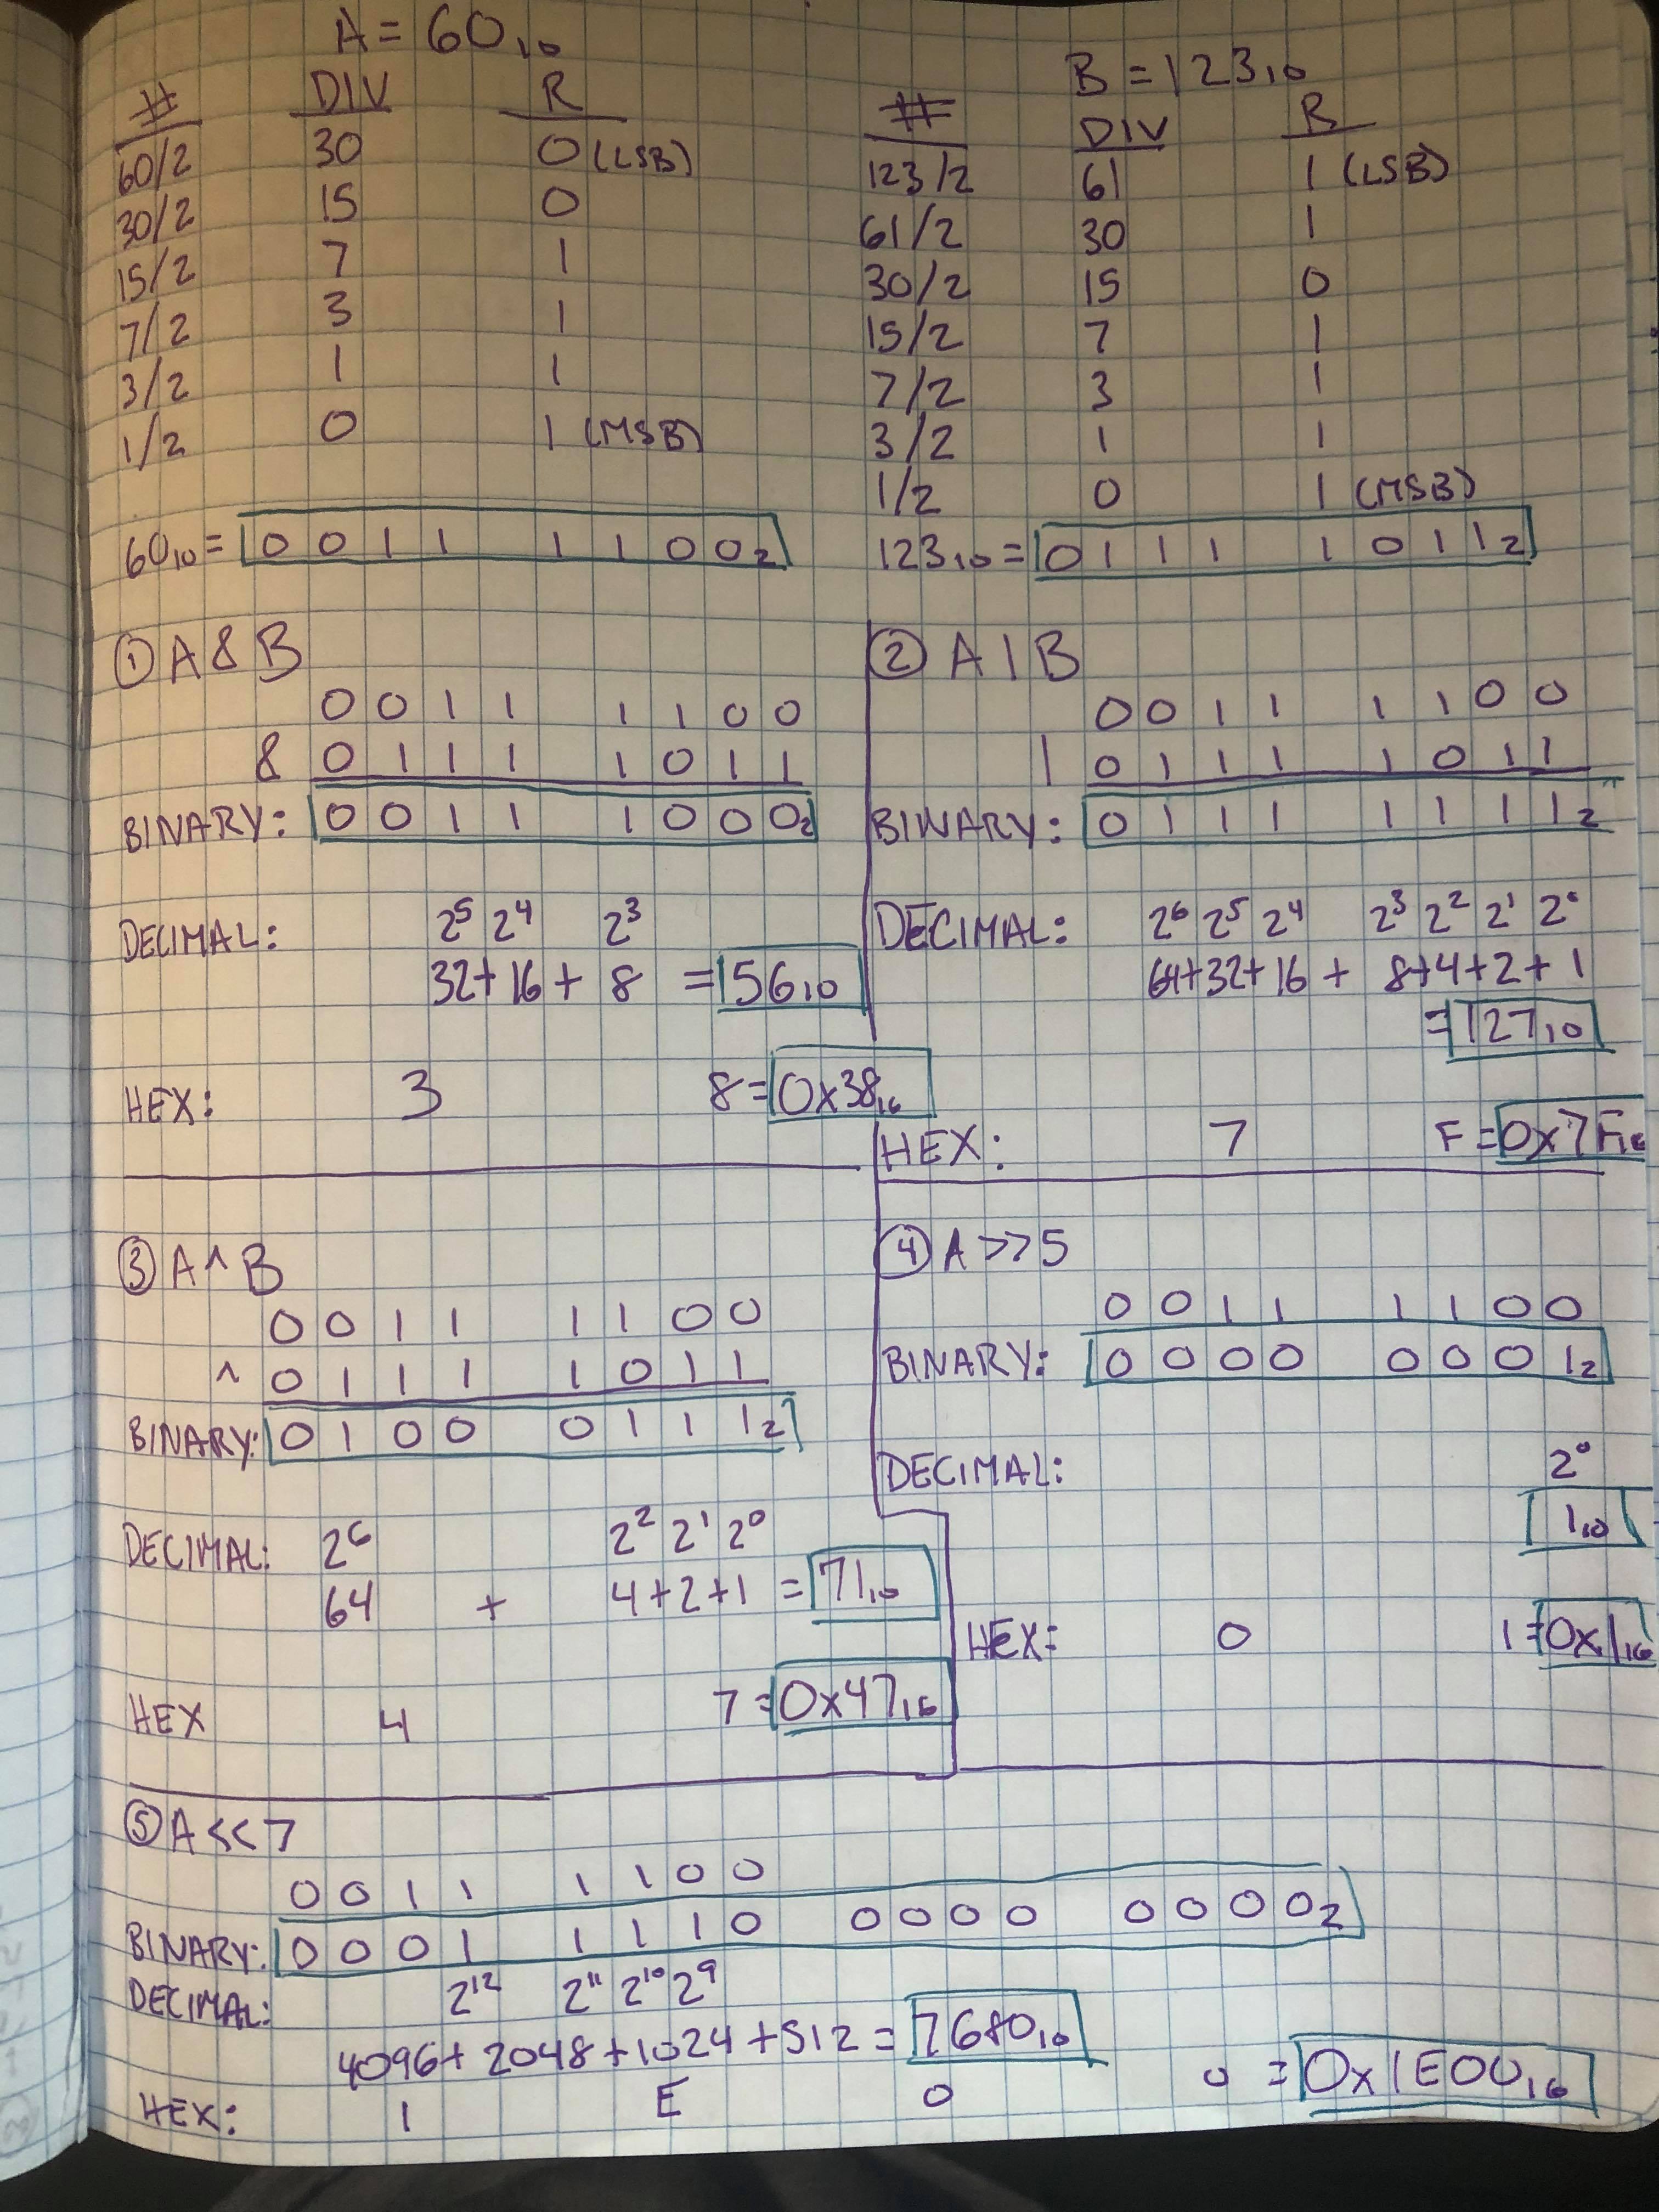 A = 60₁₀
# DIV R
60/2 30 0 (LSB)
30/2 15 0
15/2 7 1
7/2 3 1
3/2 1 1
1/2 0 1 (MSB)
60₁₀ = 0 0 1 1 1 1 0 0₂
B = 123₁₀
# DIV R
123/2 61 1 (LSB)
61/2 30 1
30/2 15 0
15/2 7 1
7/2 3 1
3/2 1 1
1/2 0 1 (MSB)
123₁₀ = 0 1 1 1 1 0 1 1₂
① A & B
0 0 1 1 1 1 0 0
& 0 1 1 1 1 0 1 1
BINARY: 0 0 1 1 1 0 0 0₂
DECIMAL: 2⁵ 2⁴ 2³
32 + 16 + 8 = 56₁₀
HEX: 3 8 = 0x38₁₆
② A | B
0 0 1 1 1 1 0 0
| 0 1 1 1 1 0 1 1
BINARY: 0 1 1 1 1 1 1 1₂
DECIMAL: 2⁶ 2⁵ 2⁴ 2³ 2² 2¹ 2⁰
64+32+16 + 8+4+2+1
= 127₁₀
HEX: 7 F = 0x7F₁₆
③ A ^ B
0 0 1 1 1 1 0 0
^ 0 1 1 1 1 0 1 1
BINARY: 0 1 0 0 0 1 1 1₂
DECIMAL: 2⁶ 2² 2¹ 2⁰
64 + 4+2+1 = 71₁₀
HEX 4 7 = 0x47₁₆
④ A >> 5
0 0 1 1 1 1 0 0
BINARY: 0 0 0 0 0 0 0 1₂
DECIMAL: 2⁰
1₁₀
HEX: 0 1 = 0x1₁₆
⑤ A << 7
0 0 1 1 1 1 0 0
BINARY: 0 0 0 1 1 1 1 0 0 0 0 0 0 0 0 0₂
DECIMAL: 2¹² 2¹¹ 2¹⁰ 2⁹
4096 + 2048 + 1024 + 512 = 7680₁₀
HEX: 1 E 0 0 = 0x1E00₁₆